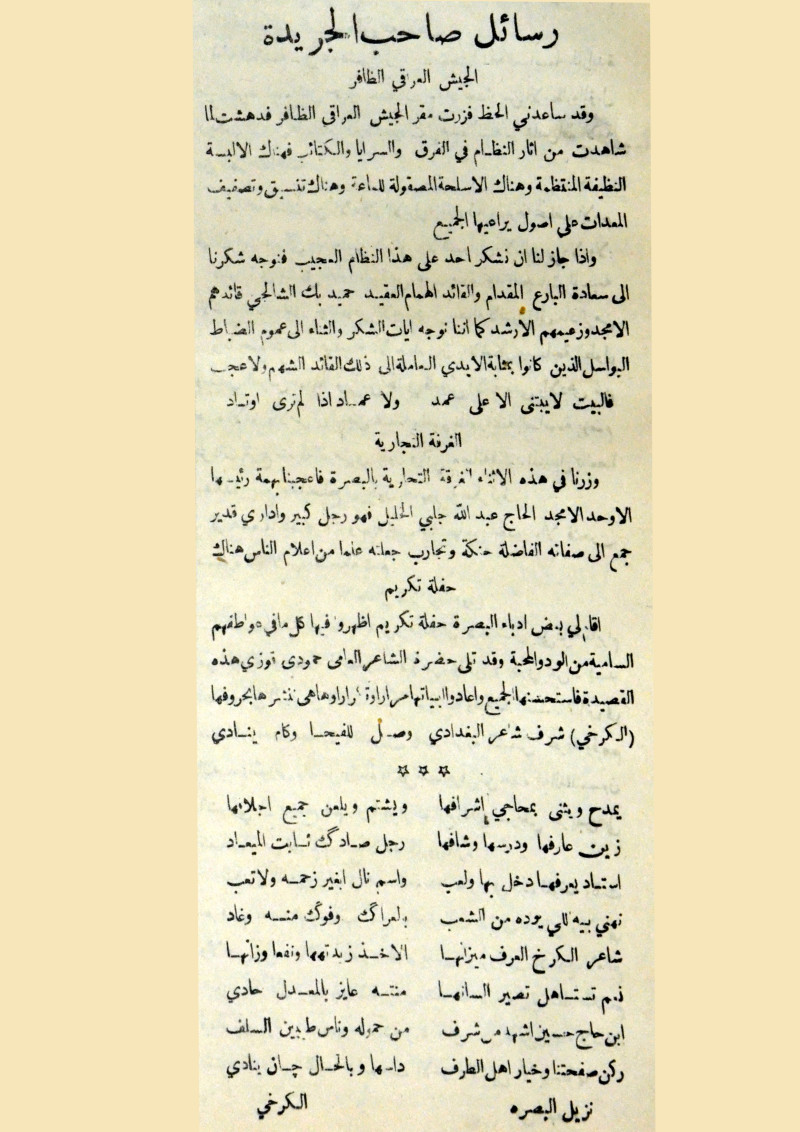 رسائل صاحب الجريدة
الجيش العراقي الظافر
وقد ساعدني الحظ فزرت مقر الجيش العراقي الظافر فدهشت لما
شاهدت من اثار النظام في الفرق والسرايا والكتائب فهناك الالبسة
النظيفة المنتظمة وهناك الاسلحة المصقولة للماعة وهناك تنسيق وتصفيف
المعدات على اصول يراعيها الجميع
واذا جاز لنا ان نشكر احد على هذا النظام العجيب فنوجه شكرنا
الى سعادة البارع المقدام والقائد الهمام العقيد حميد بك الشالجي قائدهم
الامجد وزعيمهم الارشد كما اننا نوجه ايات الشكر والثناء الى عموم الضباط
البواسل الذين كانوا بمثابة الايدي العاملة الى ذلك القائد الشهم ولا عجب
فالبيت لا يبتنى الا على عمد ولا عماد اذا لم ترى اوتاد
الغرفة التجارية
وزرنا في هذه الاثناء الغرفة التجارية بالبصرة فاعجبنا بهمة رئيسها
الاوحد الامجد الحاج عبد الله جلبي الخليل فهو رجل كبير واداري قدير
جمع الى صفاته الفاضلة حنكة وتجارب جعلته علما من اعلام الناس هناك
حفلة تكريم
اقام لي بعض ادباء البصرة حفلة تكريم اظهروا فيها كل ما في عواطفهم
السامية من الود والمحبة وقد تلى حضرة الشاعر العامي حمودي توزي هذه
القصيدة فاستحسنها الجميع واعادوا ابياتها مرارا وتكرارا وها هي ننشرها بحروفها
(الكرخي) شرف شاعر البغدادي وصل للفيحا وكام ينادي
يمدح ويثنى بمحاجي إشرافها ويشتم ويلعن جميع اجلافها
زين عارفها ودرسها وشافها رجل صادگ ثابت الميعاد
استاد يعرفها دخل بها ولعب واسم نال ابغير زحمه ولا تعب
نهني بيه للي يوده من الشعب بلعراگ وفوگ منه وغاد
شاعر الكرخ العرف ميزانها الاخذ زبدتهها ونفعا وزانها
نعم تستاهل تصير السانها منته عايز بالمعدل حادي
ابن حاج حسين اشهد من شرف من حموله وناس طيبين السلف
ركن صفحتنا وخيار اهل الطرف دامها وبالحال چان ينادي
نزيل البصره الكرخي